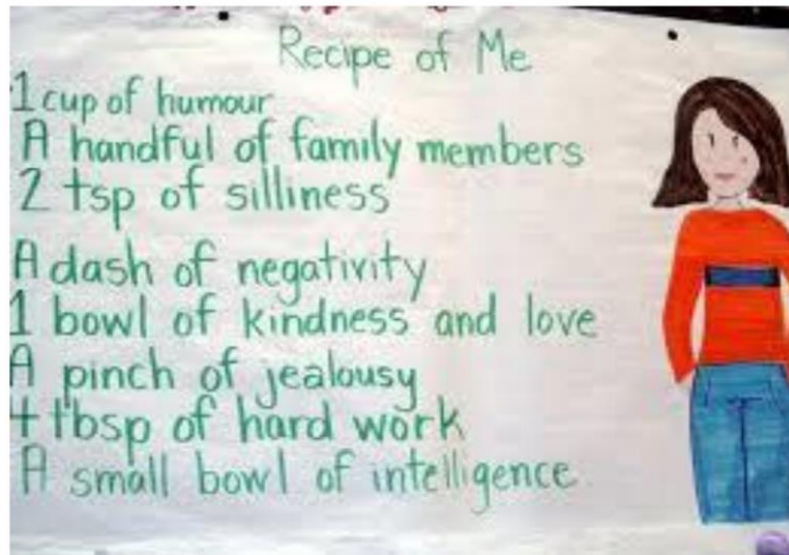 Recipe of Me
1 cup of humour
A handful of family members
2 tsp of silliness
A dash of negativity
1 bowl of kindness and love
A pinch of jealousy
4 tbsp of hard work
A small bowl of intelligence